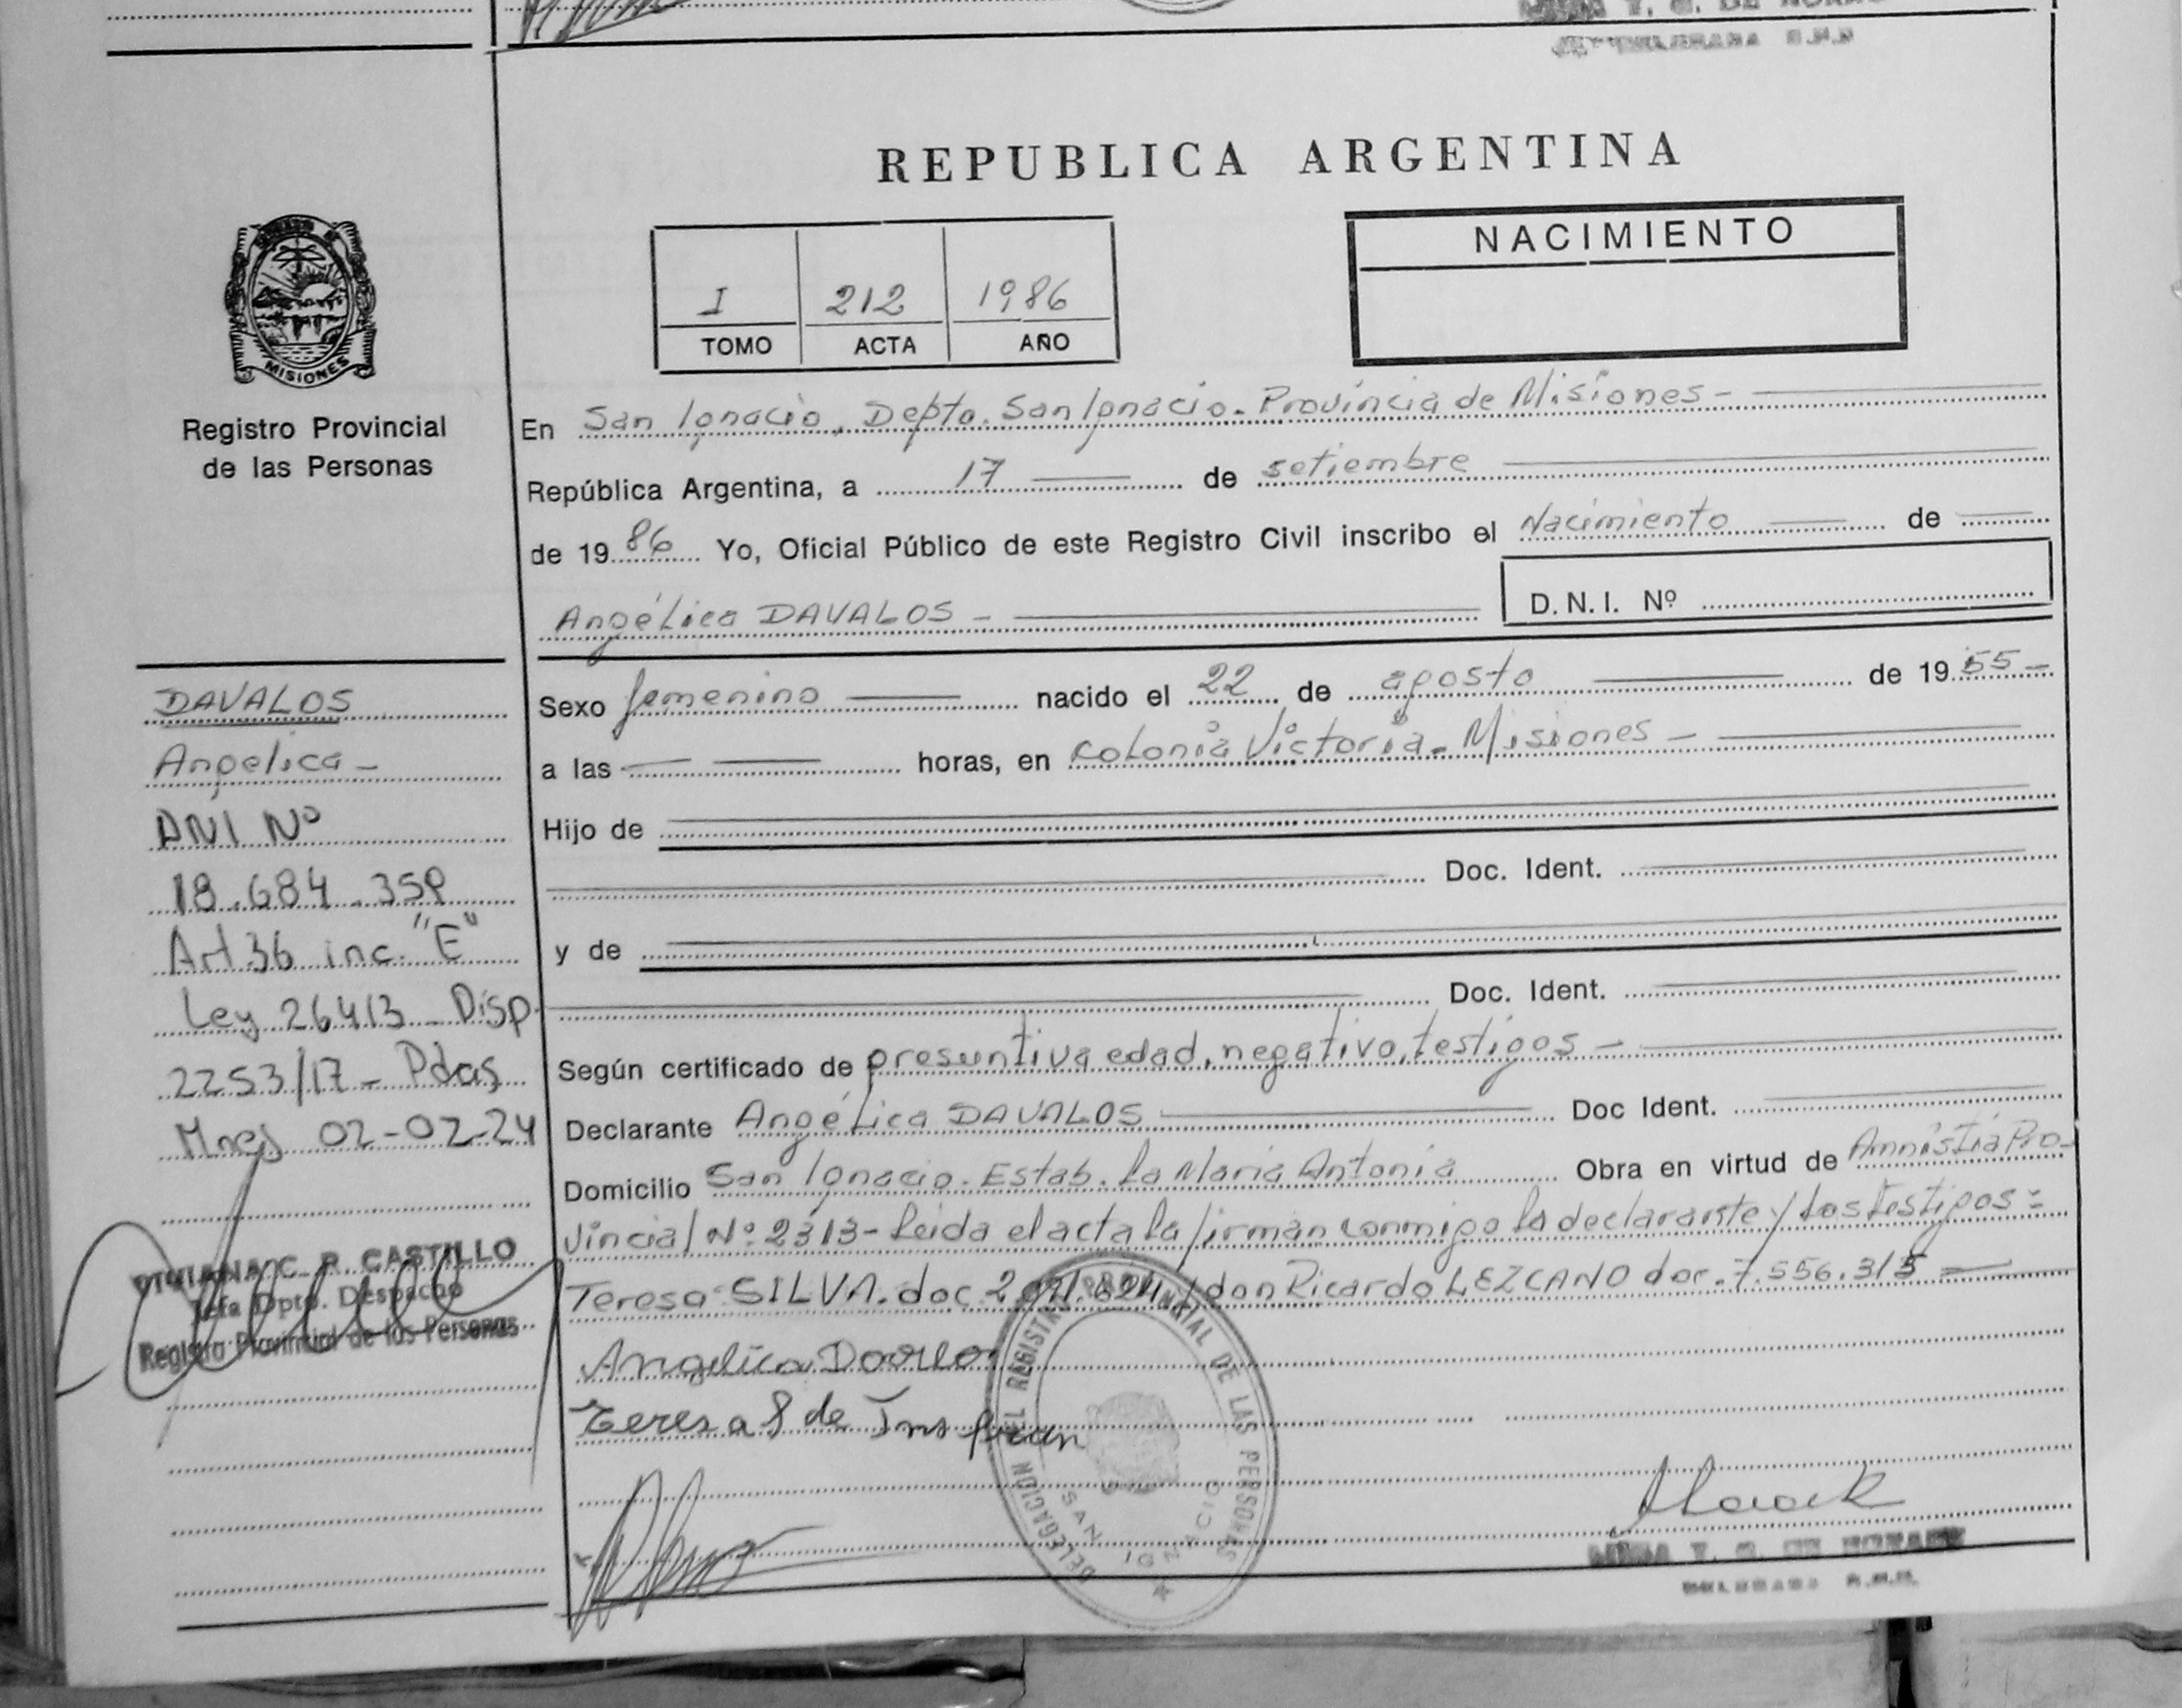 REPUBLICA ARGENTINA
I 212 1986
TOMO ACTA AÑO
NACIMIENTO
MISIONES
Registro Provincial
de las Personas
En San Ignacio, Depto. San Ignacio. Provincia de Misiones -
República Argentina, a 17 de setiembre
de 19 86 Yo, Oficial Público de este Registro Civil inscribo el Nacimiento de
Angélica DAVALOS -
D.N.I. Nº
DAVALOS
Angelica -
DNI Nº
18.684.359
Art 36 inc. "E"
Ley 26413 - Disp.
2253/17 - Pdas
Mnes 02-02-24
VIVIANA C. R. CASTILLO
Jefa Dpto. Despacho
Registro Provincial de las Personas
Sexo femenino nacido el 22 de agosto de 19 55 -
a las horas, en colonia Victoria - Misiones -
Hijo de
Doc. Ident.
y de
Doc. Ident.
Según certificado de presuntiva edad, negativo, testigos -
Declarante Angélica DAVALOS Doc Ident.
Domicilio San Ignacio. Estab. La Maria Antonia Obra en virtud de Amnistia Pro-
vincial Nº 2313 - Leida el acta la firman conmigo la declarante y los testigos:
Teresa SILVA. doc. y don Ricardo LEZCANO doc. 7.556.315
Angelica
Teresa S de
DELEGACION DEL REGISTRO PROVINCIAL DE LAS PERSONAS
SAN IGNACIO